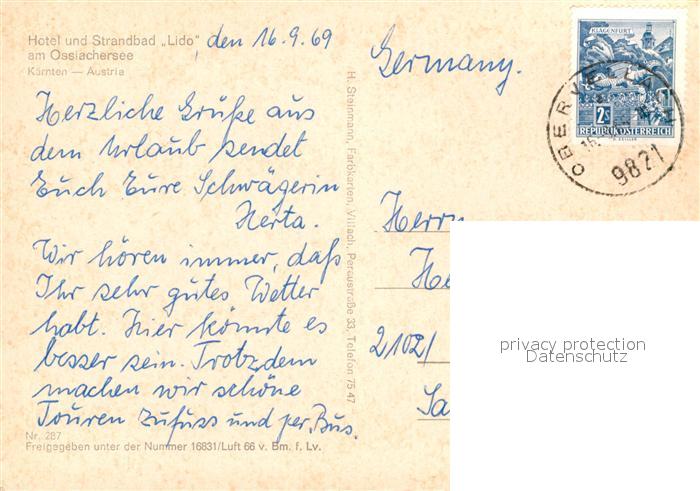 Hotel und Strandbad „Lido"
am Ossiachersee
Kärnten — Austria
, den 16.9.69
Herzliche Grüße aus
dem Urlaub sendet
Euch Eure Schwägerin
Herta.
Wir hören immer, daß
Ihr sehr gutes Wetter
habt. Hier könnte es
besser sein. Trotzdem
machen wir schöne
Touren Zufuss und per Bus.
Nr. 287
Freigegeben unter der Nummer 16831/Luft 66 v. Bm. f. Lv.
H. Steinmann, Farbkarten, Villach, Peraustraße 33, Telefon 75 47
Germany.
KLAGENFURT
2S
REPUBLIK ÖSTERREICH
OBERVELLACH
9821
Herrn
He
2102/
Sa
privacy protection
Datenschutz